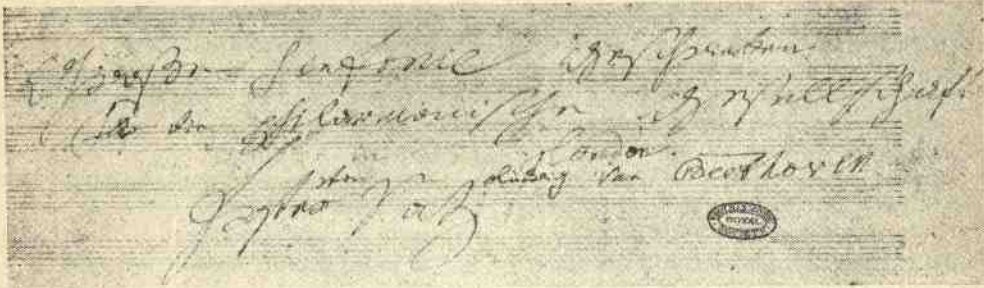 Große Sinfonie geschrieben
für die Philarmonische Gesellschaft
in London.
von Ludwig van Beethoven
Erster Satz
ROYAL